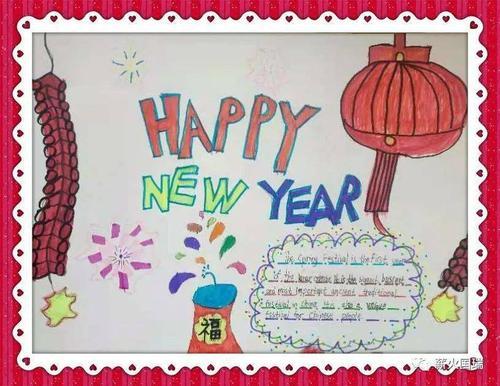 HAPPY
NEW YEAR
The Spring Festival is the first
of the lunar It is the
and most important ancient traditional
festival in China It's also a unique
festival for Chinese people
福
薪火国瑞